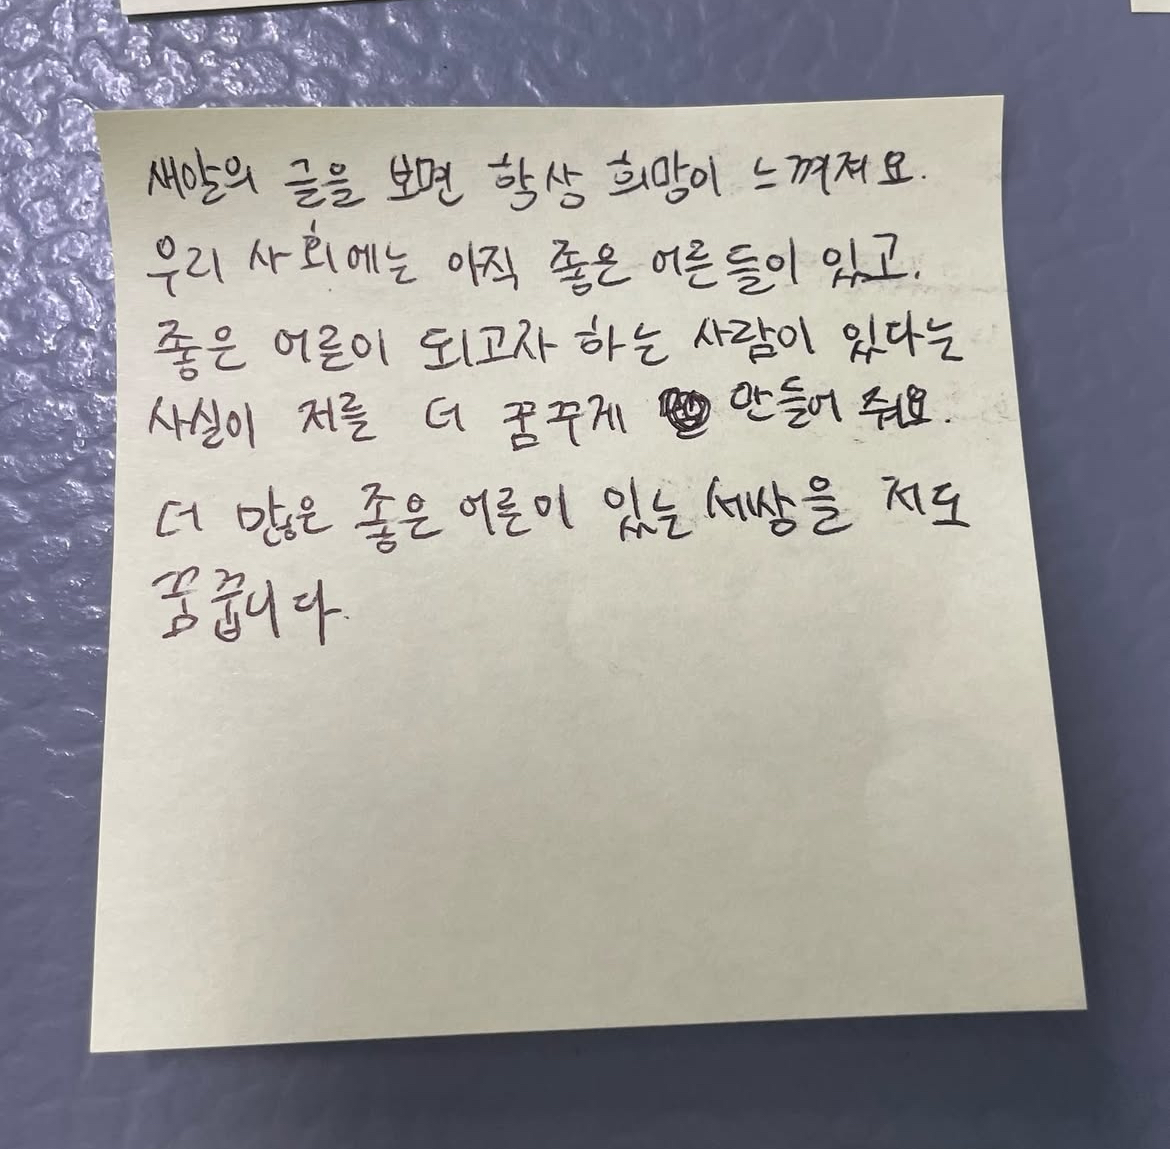 새알의 글을 보면 학상 희망이 느껴져요.
우리 사회에는 아직 좋은 어른들이 있고,
좋은 어른이 되고자 하는 사람이 있다는
사실이 저를 더 꿈꾸게 만들어 줘요.
더 많은 좋은 어른이 있는 세상을 저도
꿈꿉니다.